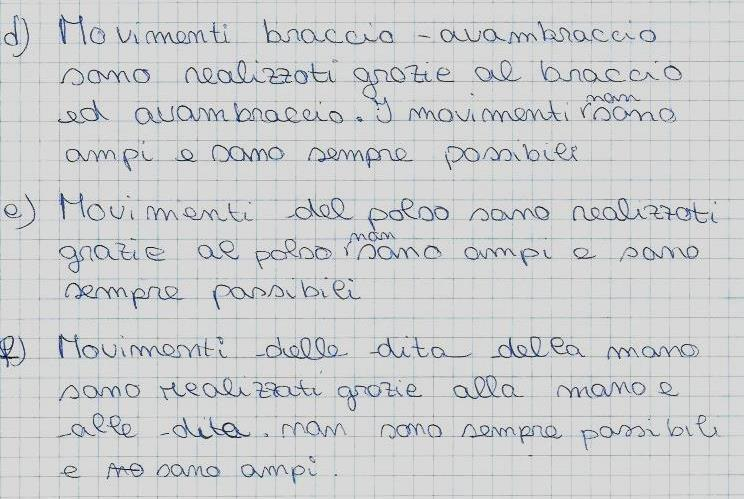 d) Movimenti braccio - avambraccio
sono realizzati grazie al braccio
ed avambraccio. I movimenti non sono
ampi e sono sempre possibili
e) Movimenti del polso sono realizzati
grazie al polso non sono ampi e sono
sempre possibili
f) Movimenti delle dita della mano
sono realizzati grazie alla mano e
alle dita. non sono sempre possibili
e sono ampi.